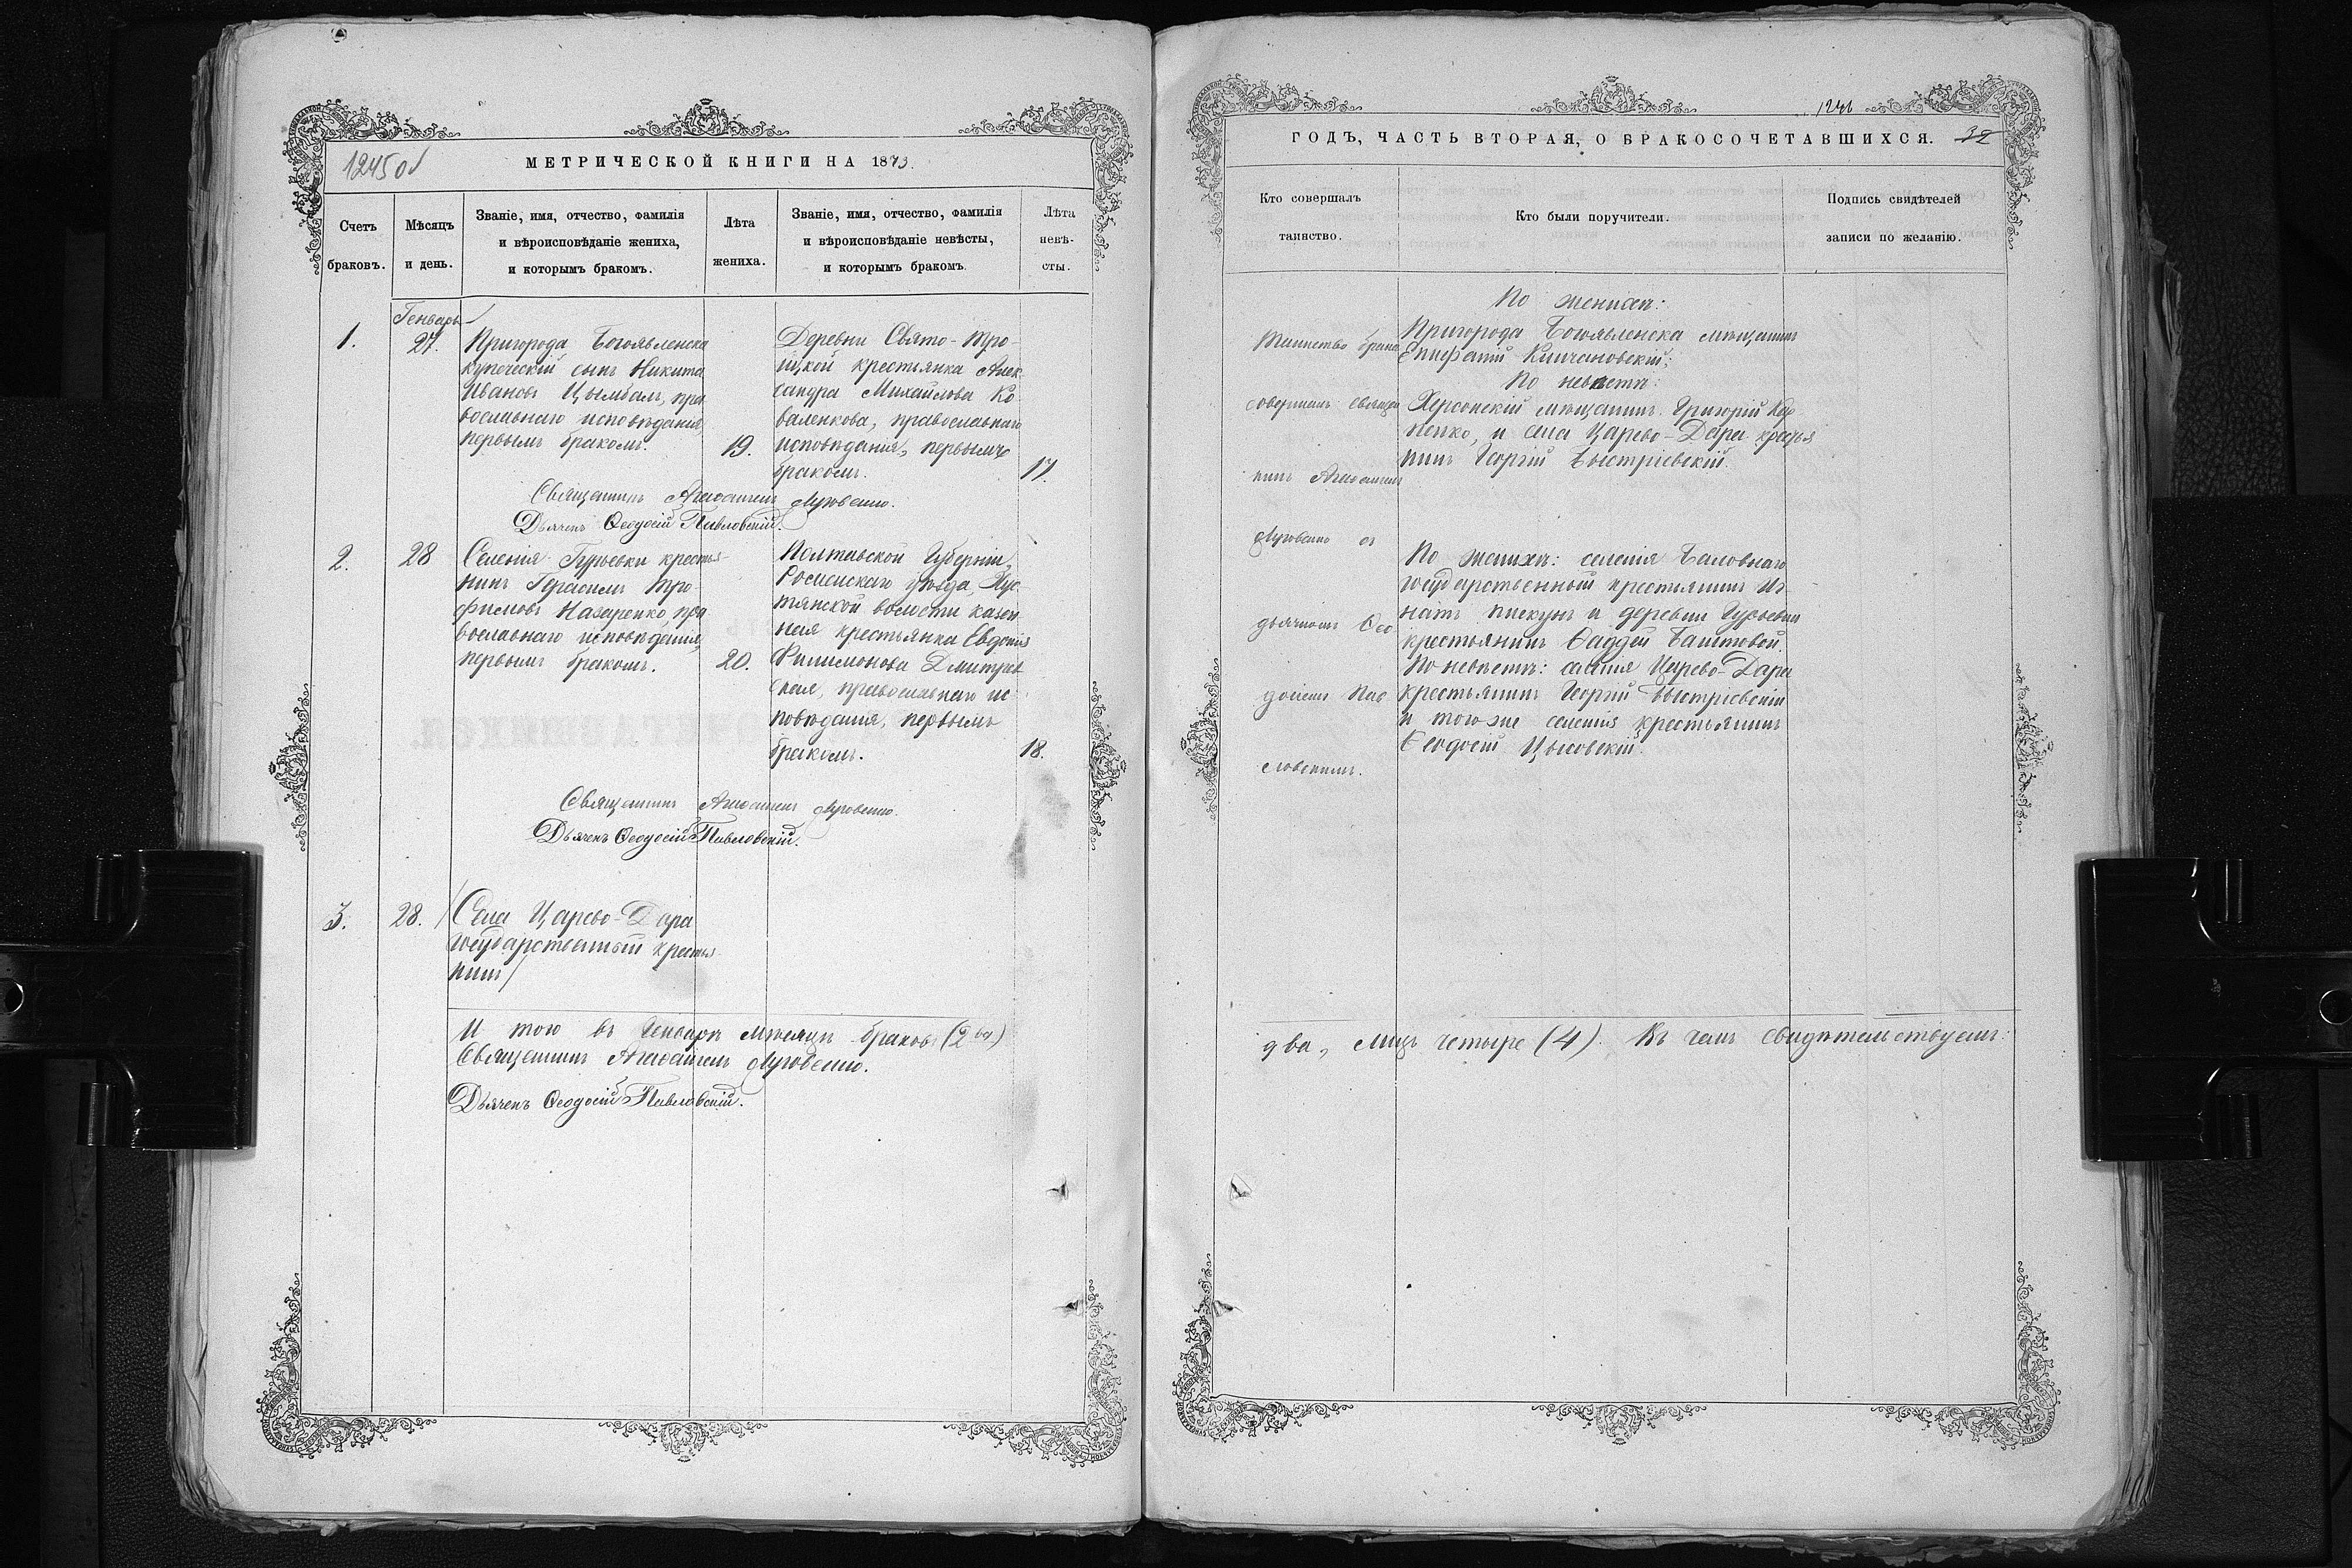 1245 об
МЕТРИЧЕСКОЙ КНИГИ НА 1873.
Счетъ
браковъ.
Мѣсяцъ
и день.
Званіе, имя, отчество, фамилія
и вѣроисповѣданіе жениха,
и которымъ бракомъ.
Лѣта
жениха.
Званіе, имя, отчество, фамилія
и вѣроисповѣданіе невѣсты,
и которымъ бракомъ.
Лѣта
невѣ-
сты.
1.
Генварь
27.
Пригорода Богоявленска
купеческій сынъ Никита
Ивановъ Цымбалъ, пра
вославнаго исповѣданія,
первымъ бракомъ.
19.
Деревни Свято-Тро-
ицкой крестьянка Алек
сандра Михайлова Ко-
валенкова, православнаго
исповѣданія, первымъ
бракомъ.
17.
Священникъ Агаѳангелъ Луговенко.
Дьячекъ Ѳеодосій Павловскій.
2.
28
Селенія Гурьевки крестья
нинъ Герасимъ Тро-
фимовъ Назаренко, пра
вославнаго исповѣданія,
первымъ бракомъ.
20.
Полтавской Губерніи,
Роменскаго уѣзда,
волости казен
ная крестьянка Евдокія
Филимонова Дмитрев
ская, православнаго ис-
повѣданія, первымъ
бракомъ.
18.
Священникъ Агаѳангелъ Луговенко.
Дьячекъ Ѳеодосій Павловскій.
3.
28.
Села Царево-Дара
государственный крестья
нинъ
И того въ Генварѣ мѣсяцѣ браковъ (2 ва)
Священникъ Агаѳангелъ Луговенко.
Дьячекъ Ѳеодосій Павловскій.
1246
ГОДЪ, ЧАСТЬ ВТОРАЯ, О БРАКОСОЧЕТАВШИХСЯ.
32
Кто совершалъ
таинство.
Кто были поручители.
Подпись свидѣтелей
записи по желанію.
Таинство брака
совершалъ священ
никъ Агаѳангелъ
Луговенко съ
дьячкомъ Ѳео
досіемъ Пав
ловскимъ.
По женихѣ:
Пригорода Богоявленска мѣщанинъ
Епифаній
По невѣстѣ:
Херсонскій мѣщанинъ Григорій
и села Царево-Дара крестья
нинъ Георгій Быстріевскій.
По женихѣ: селенія Баловнаго
государственный крестьянинъ Иг-
натъ Пискунъ и деревни Гурьевки
крестьянинъ Ѳаддей Баштовой.
По невѣстѣ: селенія Царево-Дара
крестьянинъ Георгій Быстріевскій
и того же селенія крестьянинъ
Ѳеодосій Цысовскій.
два, лицъ четыре (4). Въ чемъ свидѣтельствуемъ: